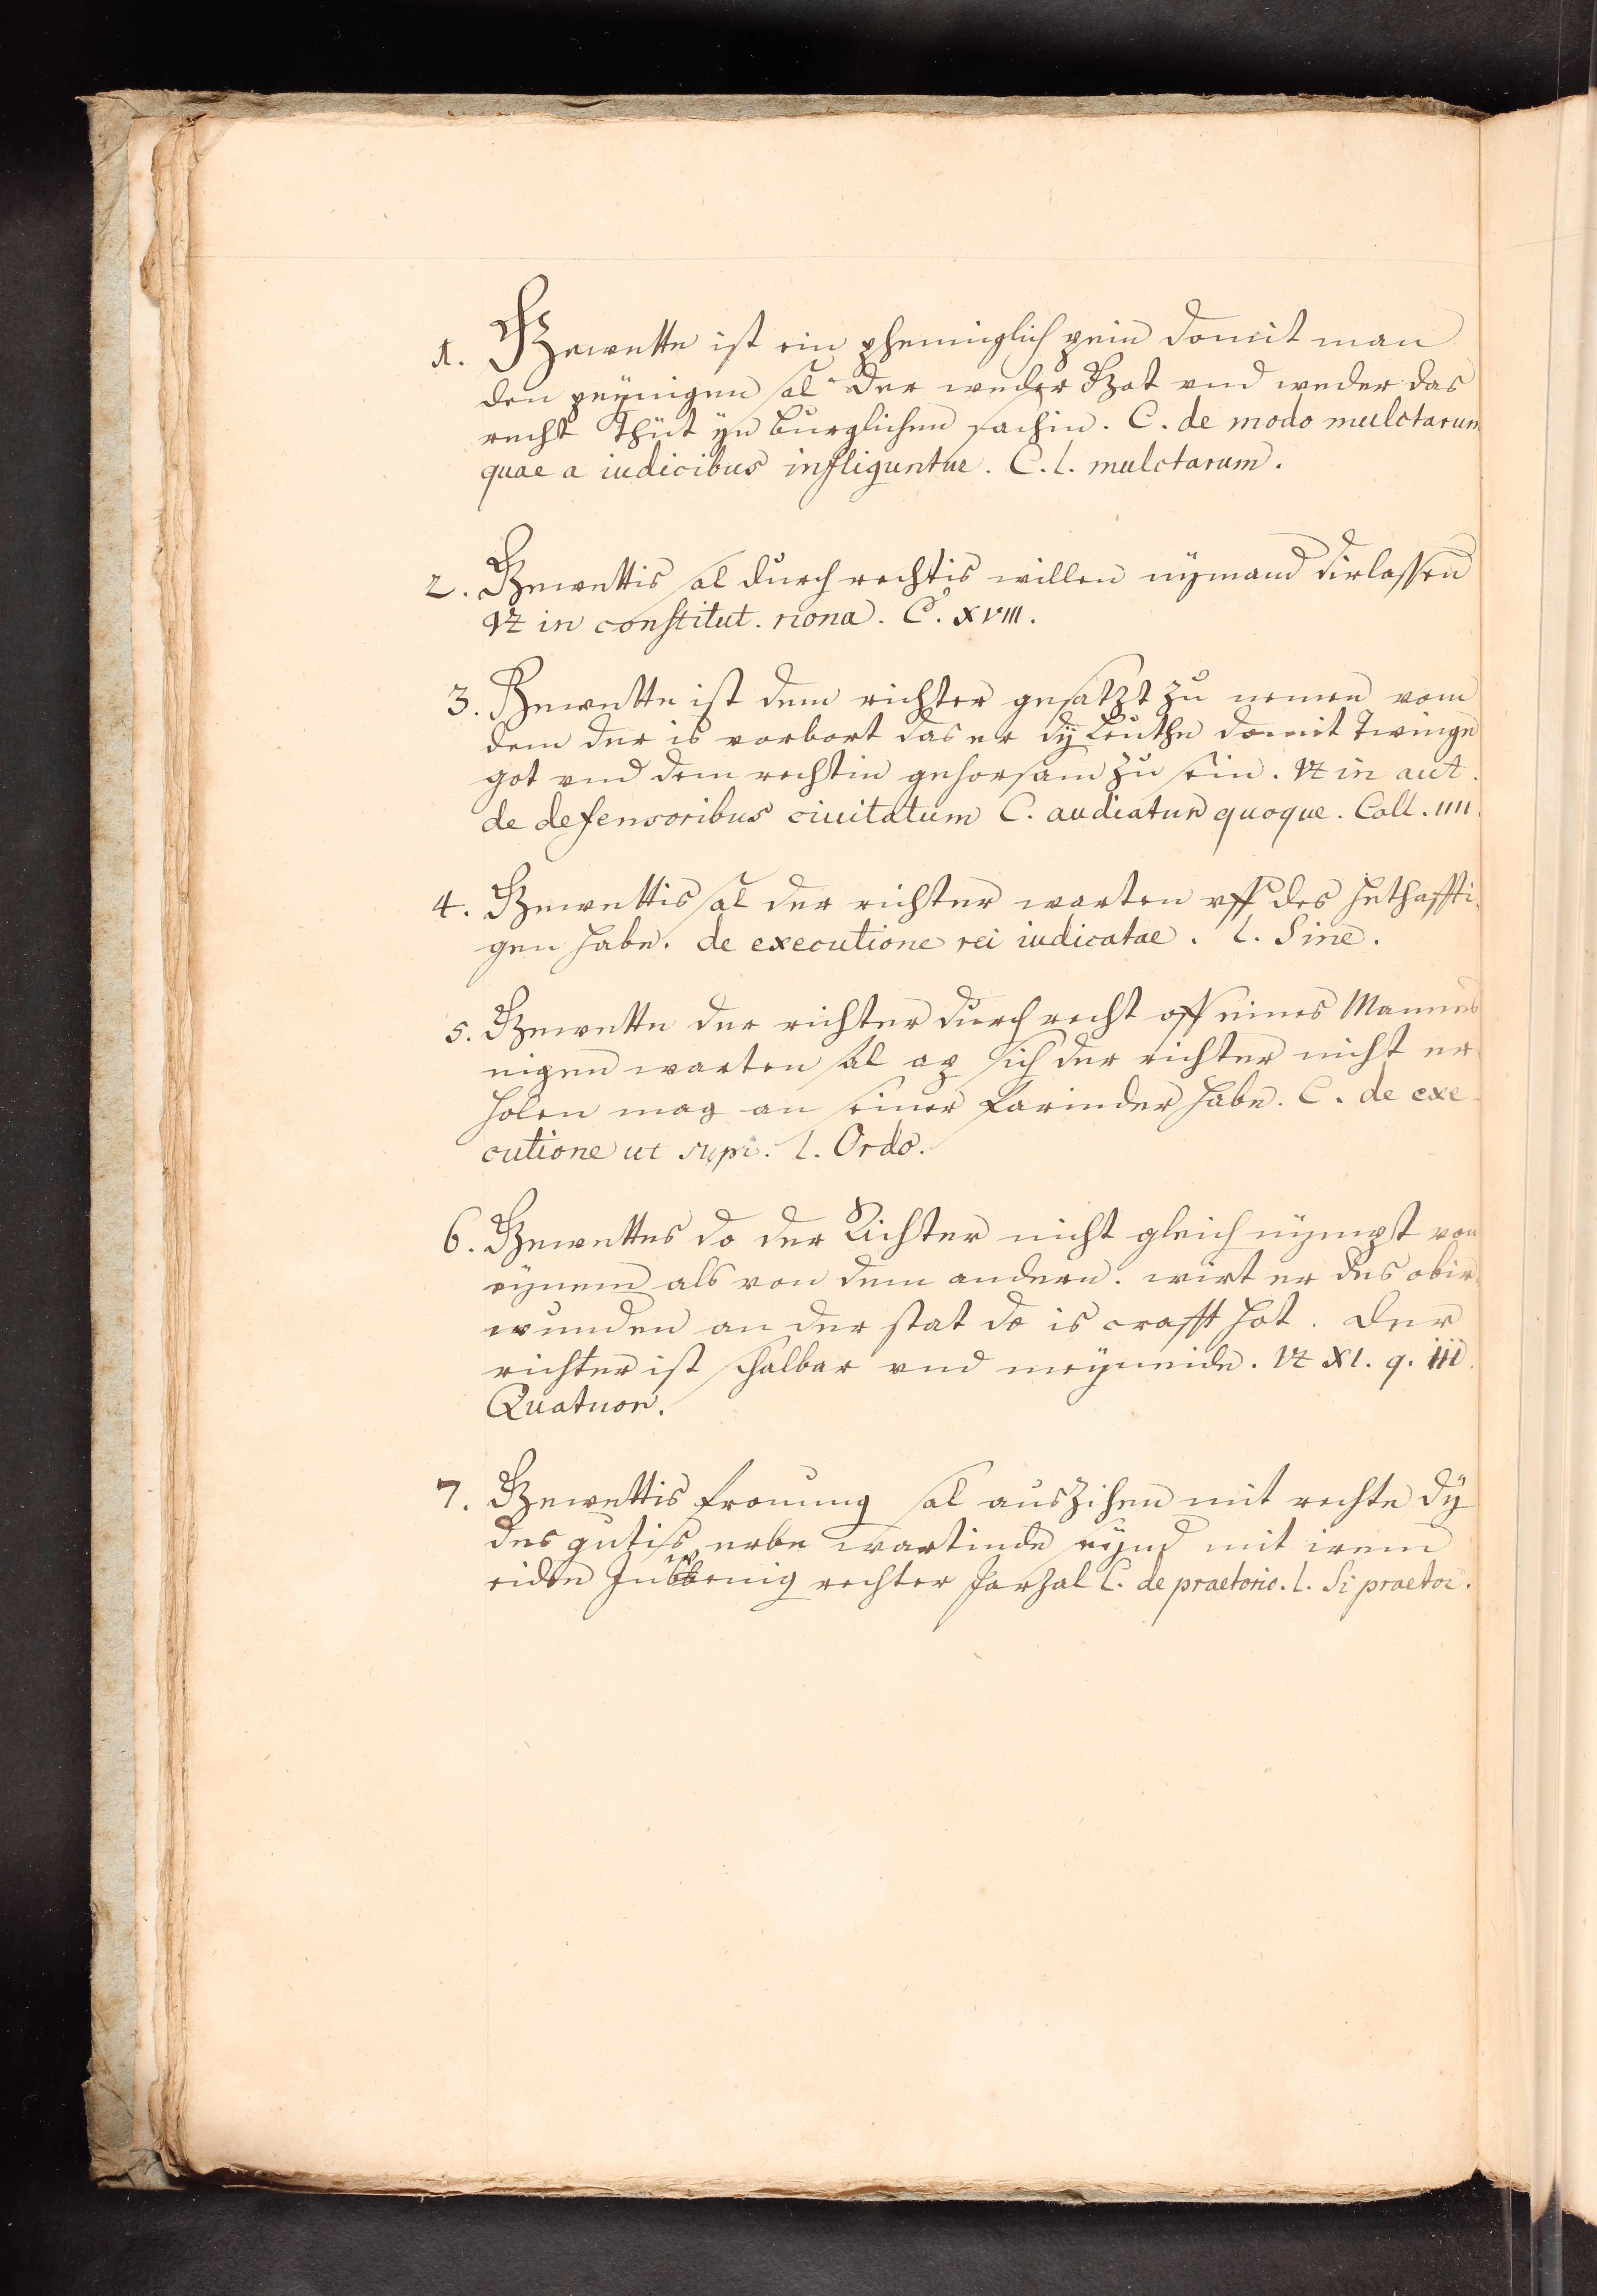 1. Gewette ist ein phenniglich pein domit man
den peÿnigen sal der weder Got vnd weder das
recht Thüt ÿn burglichen sachin. C. de modo mulctarum
quae a iudicibus infliguntur. C. l. mulctarum.
2. Gewettis sal durch rechtis willen nÿmand dirlassen
Vt in constitut. nona. C. XVIII.
3. Gewette ist dem richter gesatzt zu nemen vom
dem der is vorbort das er dÿ Leuthe domit Twinge
got vnd dem rechtin gehorsam zu sein. Vt in aut.
de defensoribus ciuitatum C. audiatur quoque. Coll. IIII.
4. Gewettis sal der richter warten vff des hethaffti-
gen habe. de executione rei iudicatae. l. Sine.
5. Gewette der richter durch recht off eines Mannes
eigen warten sal ap sich der richter nicht er
holen mag an seiner Farinder habe. C. de exe-
cutione ut supr. l. Ordo.
6. Gewettes do der Richter nicht gleich nÿmpt von
eÿnem als von dem andern. wirt er des obir
wunden an der stat do is crafft hot. der
richter ist schalbar vnd meÿneide. Vt XI. q. iii.
Quatuor.
7. Gewettis fronung sal auszihen mit rechte dÿ
des gutis erbe wartinde seÿnd mit irem
eiden rechter Jarzal C. de praetorio. l. Si praetor.